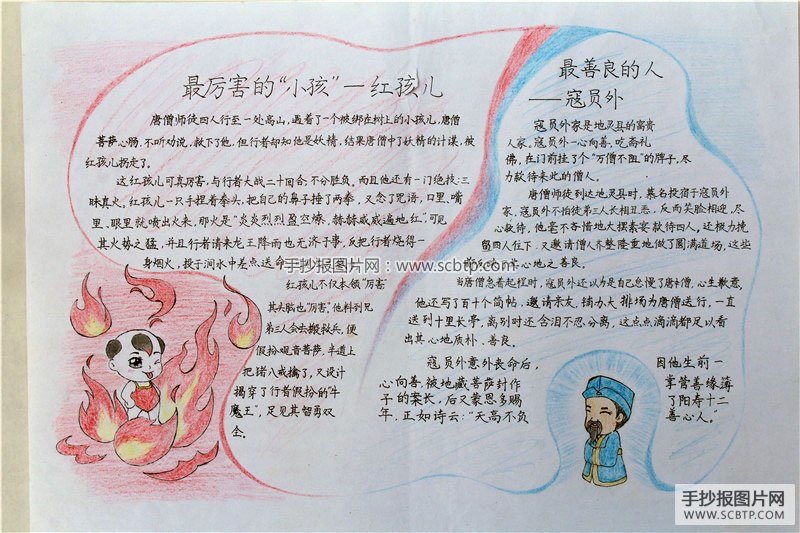 最厉害的“小孩”—红孩儿
唐僧师徒四人行至一处高山，遇着了个被绑在树上的小孩儿，唐僧
菩萨心肠，不听劝说，救下了他，但行者却知他是妖精，结果唐僧中了妖精的计谋，被
红孩儿拐走了。
这红孩儿可真厉害，与行者大战二十回合，不分胜负。而且他还有一门绝技：三
昧真火。红孩儿一只手捏着拳头，把自己的鼻子捶了两拳，又念了咒语，口里、嘴
里、眼里就喷出火来，那火是“炎炎烈烈盈空燎，赫赫威威遍地红”，可见
其火势之猛，并且行者请来龙王降雨也无济于事，反把行者烧得一
身烟火，投于涧水中差点送命
红孩儿不仅本领“厉害”
其头脑也“厉害”他料到兄
弟三人会去搬救兵，便
假扮观音菩萨，半道上
把猪八戒擒了，又设计
揭穿了行者假扮的“牛
魔王”，足见其智勇双
全。
最善良的人
——寇员外
寇员外家是地灵县的富贵
人家。寇员外一心向善，吃斋礼
佛，在门前挂了个“万僧不阻”的牌子，尽
力款待来此的僧人。
唐僧师徒到达地灵县时，慕名投宿于寇员外
家，寇员外不怕徒弟三人长相丑恶，反而笑脸相迎，尽
心款待，他毫不吝惜地大摆素宴款待四人，还极力挽
留四人住下，又邀请僧人齐整隆重地做了圆满道场，这些
心地之善良。
当唐僧急着起程时，寇员外还以为是自己怠慢了唐僧，心生歉意，
他还写了百十个简帖，邀请亲友，铺办大排场为唐僧送行，一直
送到十里长亭，离别时还含泪不忍分离，这点点滴滴都足以看
出其心地质朴、善良。
寇员外意外丧命后，因他生前一
心向善，被地藏菩萨封作掌管善缘簿
子的案长，后又蒙恩多赐了阳寿十二
年，正如诗云：“天高不负善心人。”
手抄报图片网：www.scbtp.com
手抄报图片网
WWW.SCBTP.COM